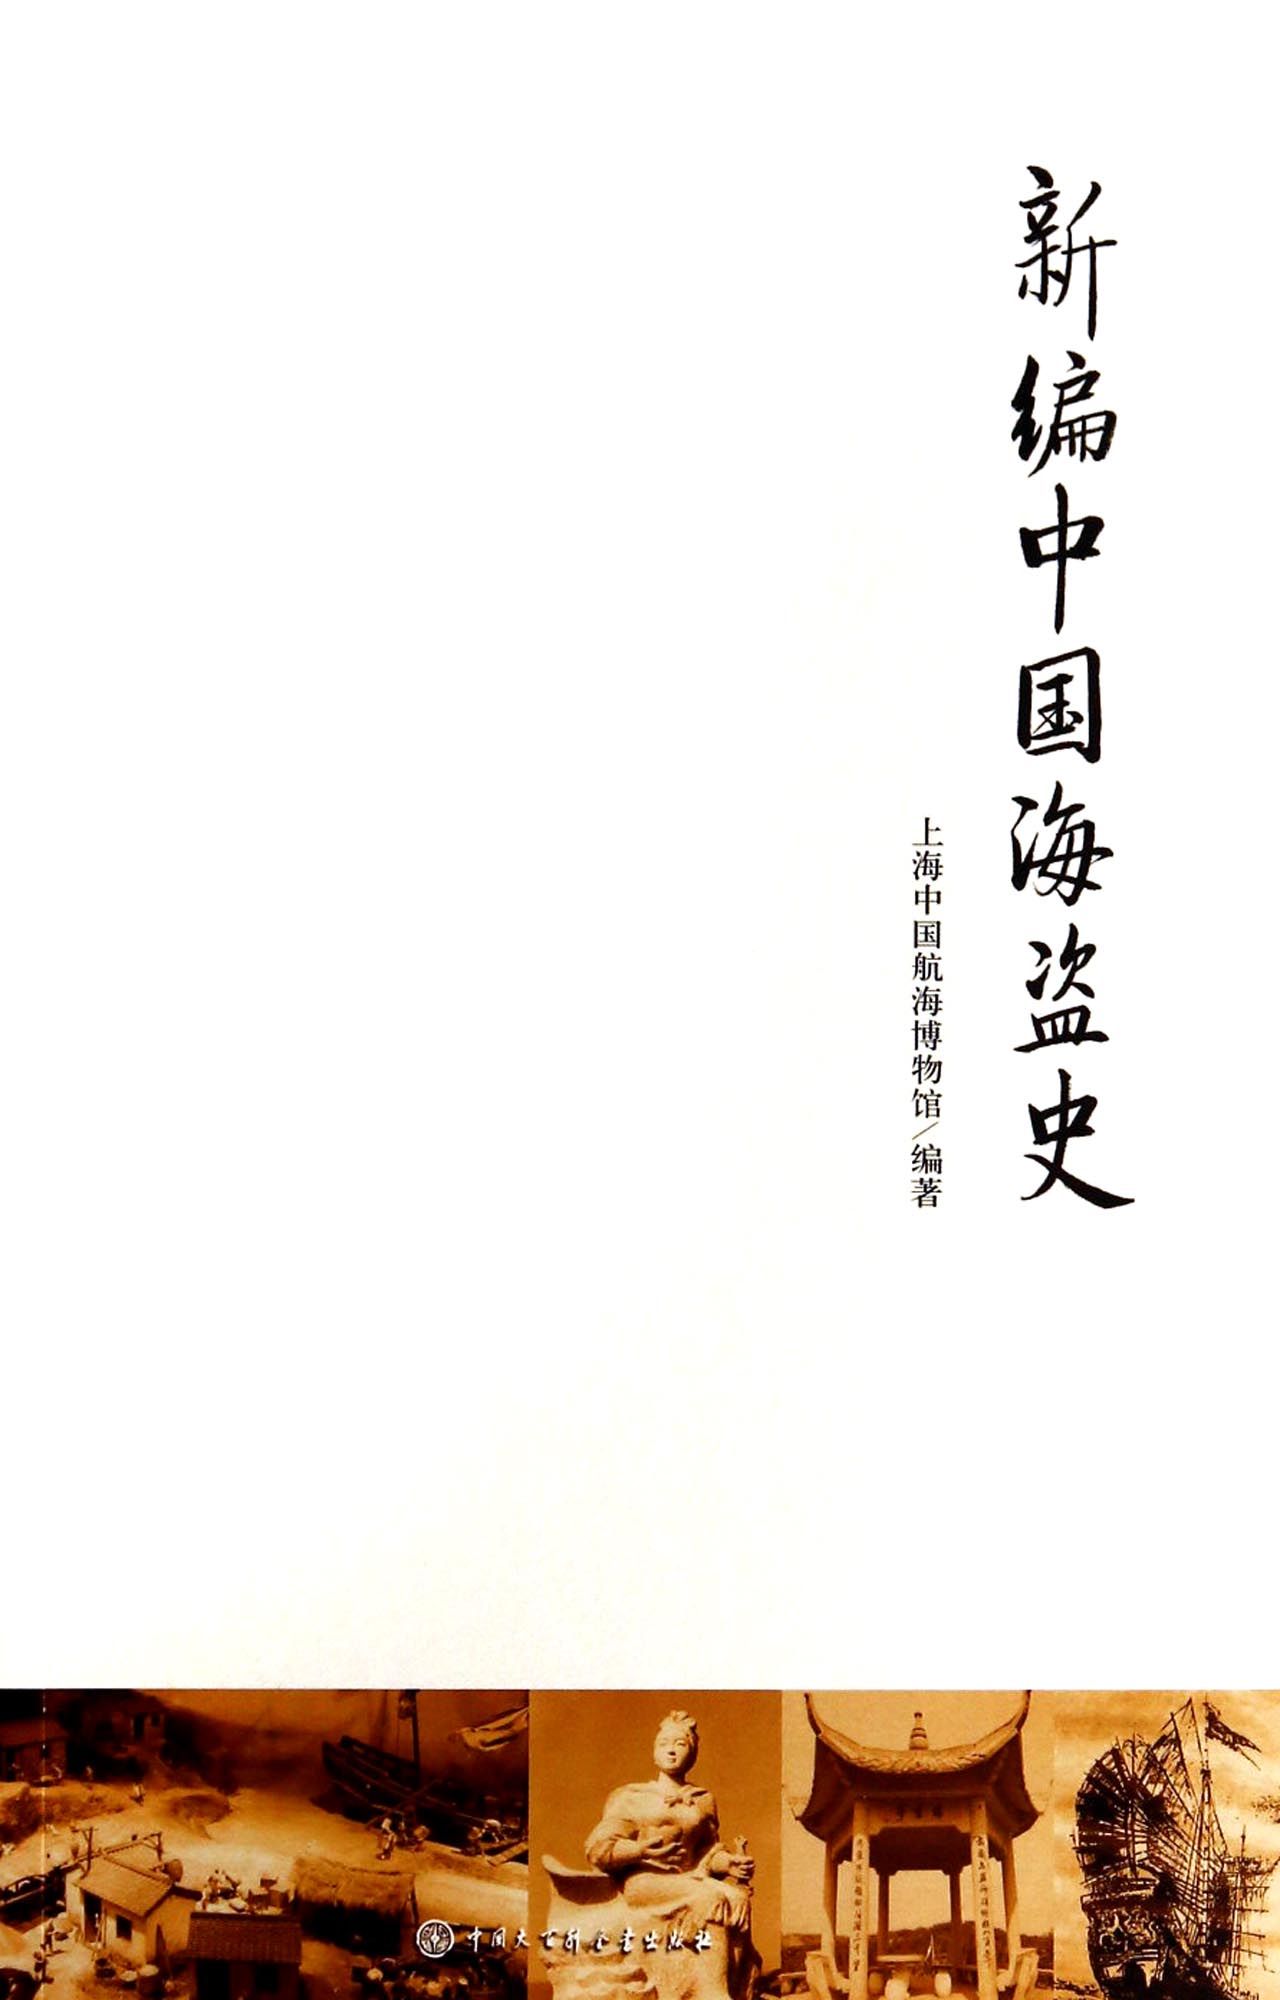 新编中国海盗史
上海中国航海博物馆/编著
中国大百科全书出版社